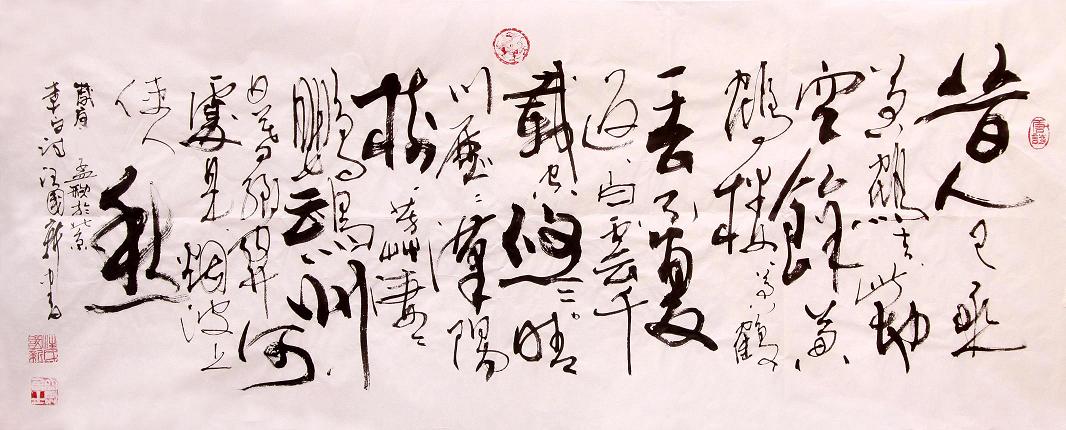 昔人已乘
黄鶴去此地
空餘黄
鶴楼黄鶴
一去不復
返白雲千
載空悠〻晴
川歷〻漢陽
樹芳艸萋〻
鸚鵡洲
日暮鄉關何
處是烟波上
使人愁
孟秋於北京
李白詩汪國新书